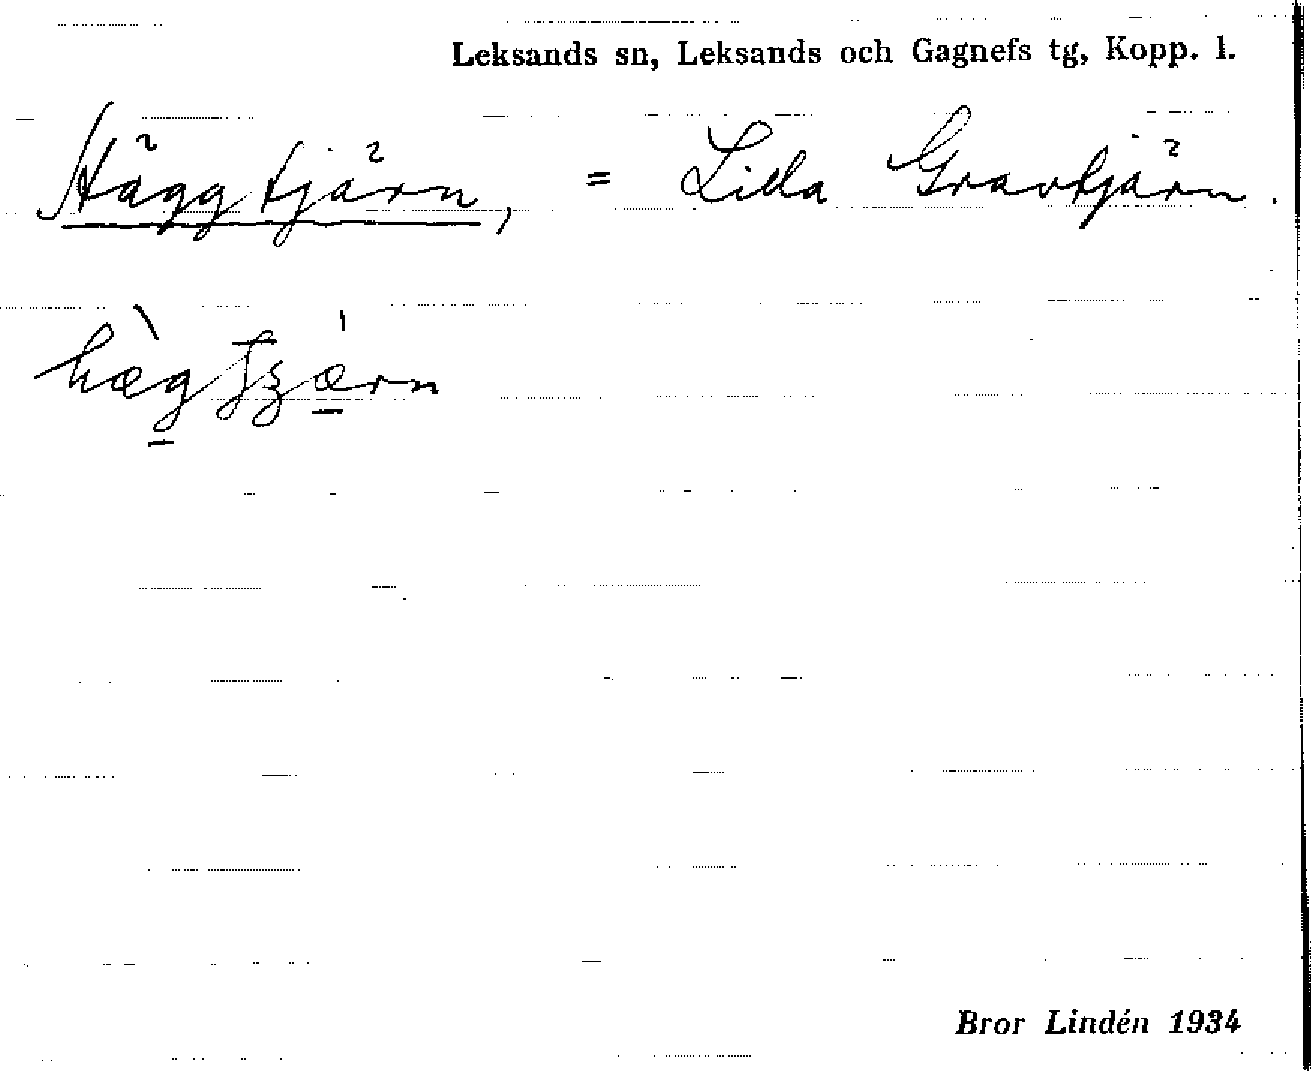 Leksands sn, Leksands och Gagnefs tg, Kopp. l.
Häggtjärn, = Lilla Gravtjärn.
Bror Lindén 1934